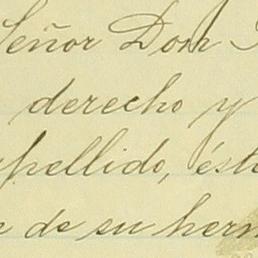 Señor Don
derecho y
apellido, ésta
de su herm